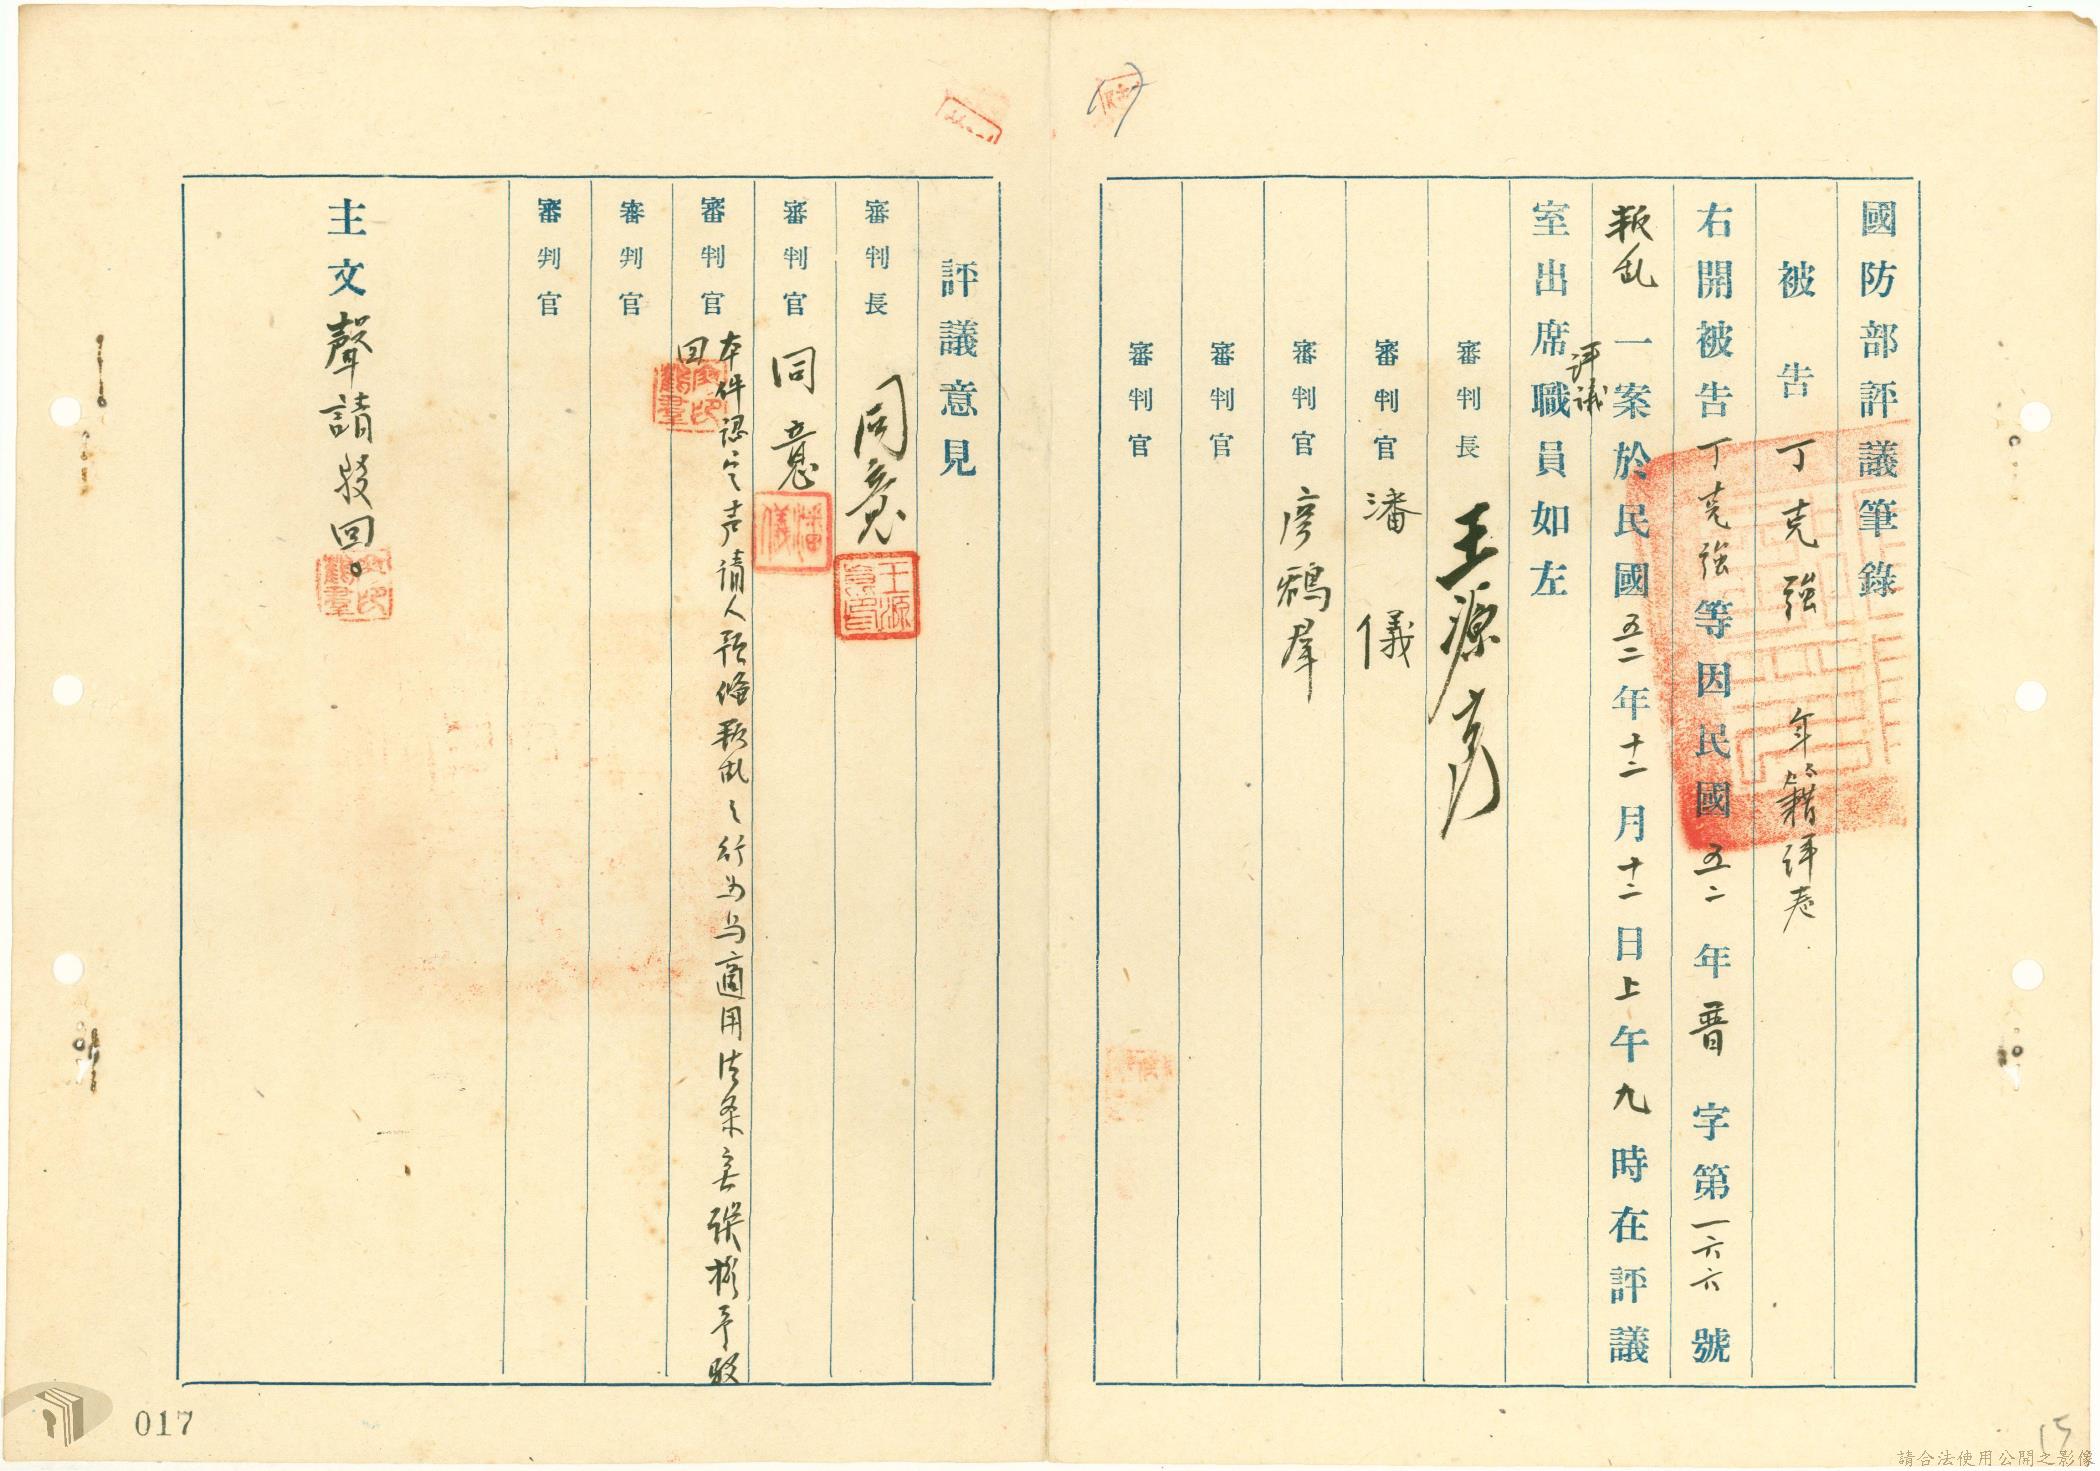 國防部評議筆錄
被告丁克強 年籍詳卷
右開被告丁克強等因民國五二年晋字第一六六號
叛乱一案於民國五二年十二月十二日上午九時在評議
評議
室出席職員如左
審判長 王源
審判官 潘儀
審判官 鵷羣
審判官
審判官
評議意見
審判長 同意
王源
審判官 同意
潘儀
審判官 本件認定声請人預備叛乱之行為与適用法条無誤擬予駁
回
審判官
審判官
主文 聲請駁回。
017
15
請合法使用公開之影像